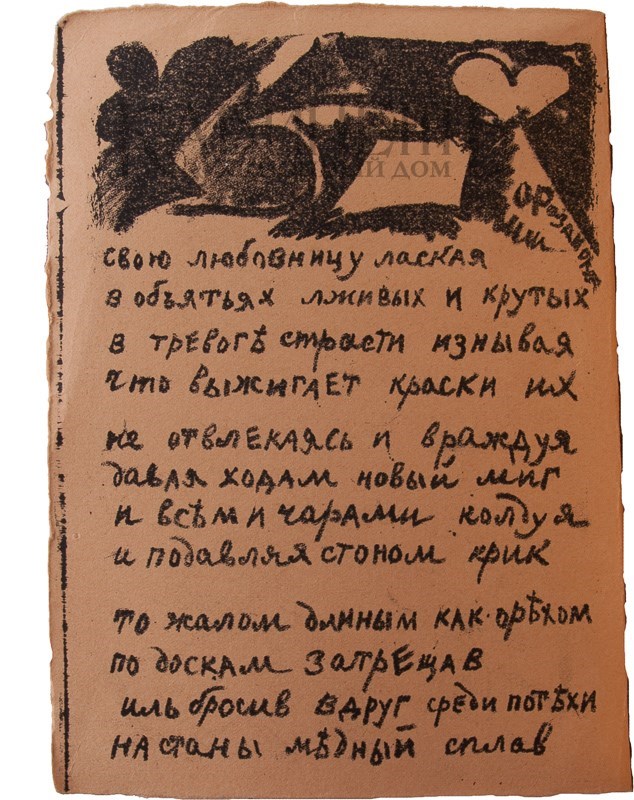 ДОМ
свою любовницу лаская
в объятьях лживых и крутых
в тревогѣ страсти изнывая
что выжигает краски их
не отвлекаясь и враждуя
давая ходам новый миг
и всѣми чарами колдуя
и подавляя стоном крик
то жалом длиным как орѣхом
по доскам затрещав
иль бросив вдруг среди потѣхи
на станы мѣдный сплав